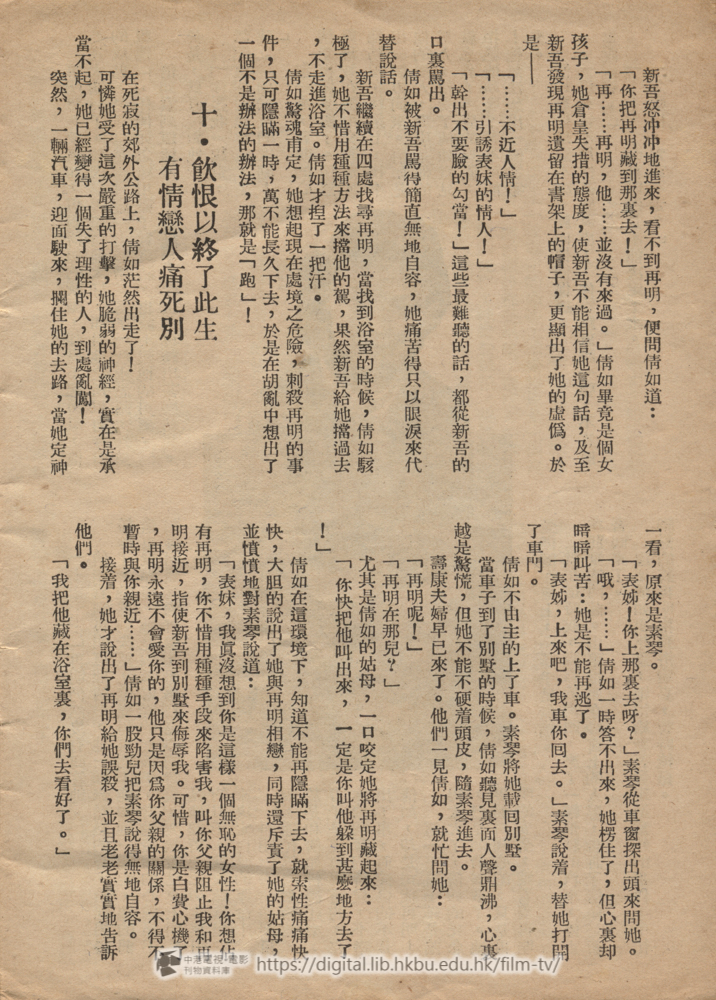 新吾怒冲冲地進來，看不到再明，便問倩如道：
「你把再明藏到那裏去！」
「再……再明，他……並沒有來過。」倩如畢竟是個女
孩子，她倉皇失措的態度，使新吾不能相信她這句話，及至
新吾發現再明遺留在書架上的帽子，更顯出了她的虛僞。於
是——
「……不近人情！」
「……引誘表妹的情人！」
「幹出不要臉的勾當！」這些最難聽的話，都從新吾的
口裏罵出。
倩如被新吾罵得簡直無地自容，她痛苦得只以眼淚來代
替說話。
新吾繼續在四處找尋再明，當找到浴室的時候，倩如駭
極了，她不惜用種種方法來擋他的駕，果然新吾給她擋過去
，不走進浴室。倩如才捏了一把汗。
倩如驚魂甫定，她想起現在處境之危險，刺殺再明的事
件，只可隱瞞一時，萬不能長久下去，於是在胡亂中想出了
一個不是辦法的辦法，那就是「跑」！
十·飲恨以終了此生
有情戀人痛死別
在死寂的郊外公路上，倩如茫然出走了！
可憐她受了這次嚴重的打擊，她脆弱的神經，實在是承
當不起，她已經變得一個失了理性的人，到處亂闖！
突然，一輛汽車，迎面駛來，攔住她的去路，當她定神
一看，原來是素琴。
「表姊！你上那裏去呀？」素琴從車窗探出頭來問她。
「哦，……」倩如一時答不出來，她楞住了，但心裏却
暗暗叫苦：她是不能再逃了。
「表姊，上來吧，我車你回去。」素琴說着，替她打開
了車門。
倩如不由主的上了車。素琴將她載回別墅。
當車子到了別墅的時候，倩如聽見裏面人聲鼎沸，心裏
越是驚慌，但她不能不硬着頭皮，隨素琴進去。
壽康夫婦早已來了。他們一見倩如，就忙問她：
「再明呢！」
「再明在那兒？」
尤其是倩如的姑母，一口咬定她將再明藏起來：
「你快把他叫出來，一定是你叫他躲到甚麽地方去了
！」
倩如在這環境下，知道不能再隱瞞下去，就索性痛痛快
快，大胆的說出了她與再明相戀，同時還斥責了她的姑母，
並憤憤地對素琴說道：
「表妹，我眞沒想到你是這樣一個無恥的女性！你想佔
有再明，你不惜用種種手段來陷害我，叫你父親阻止我和再
明接近，指使新吾到別墅來侮辱我。可惜，你是白費心機了
，再明永遠不會愛你的，他只是因爲你父親的關係，不得不
暫時與你親近……」倩如一股勁兒把素琴說得無地自容。
接着，她才說出了再明給她誤殺，並且老老實實地告訴
他們。
「我把他藏在浴室裏，你們去看好了。」
中港電視·電影
刊物資料庫
https://digital.lib.hkbu.edu.hk/film-tv/